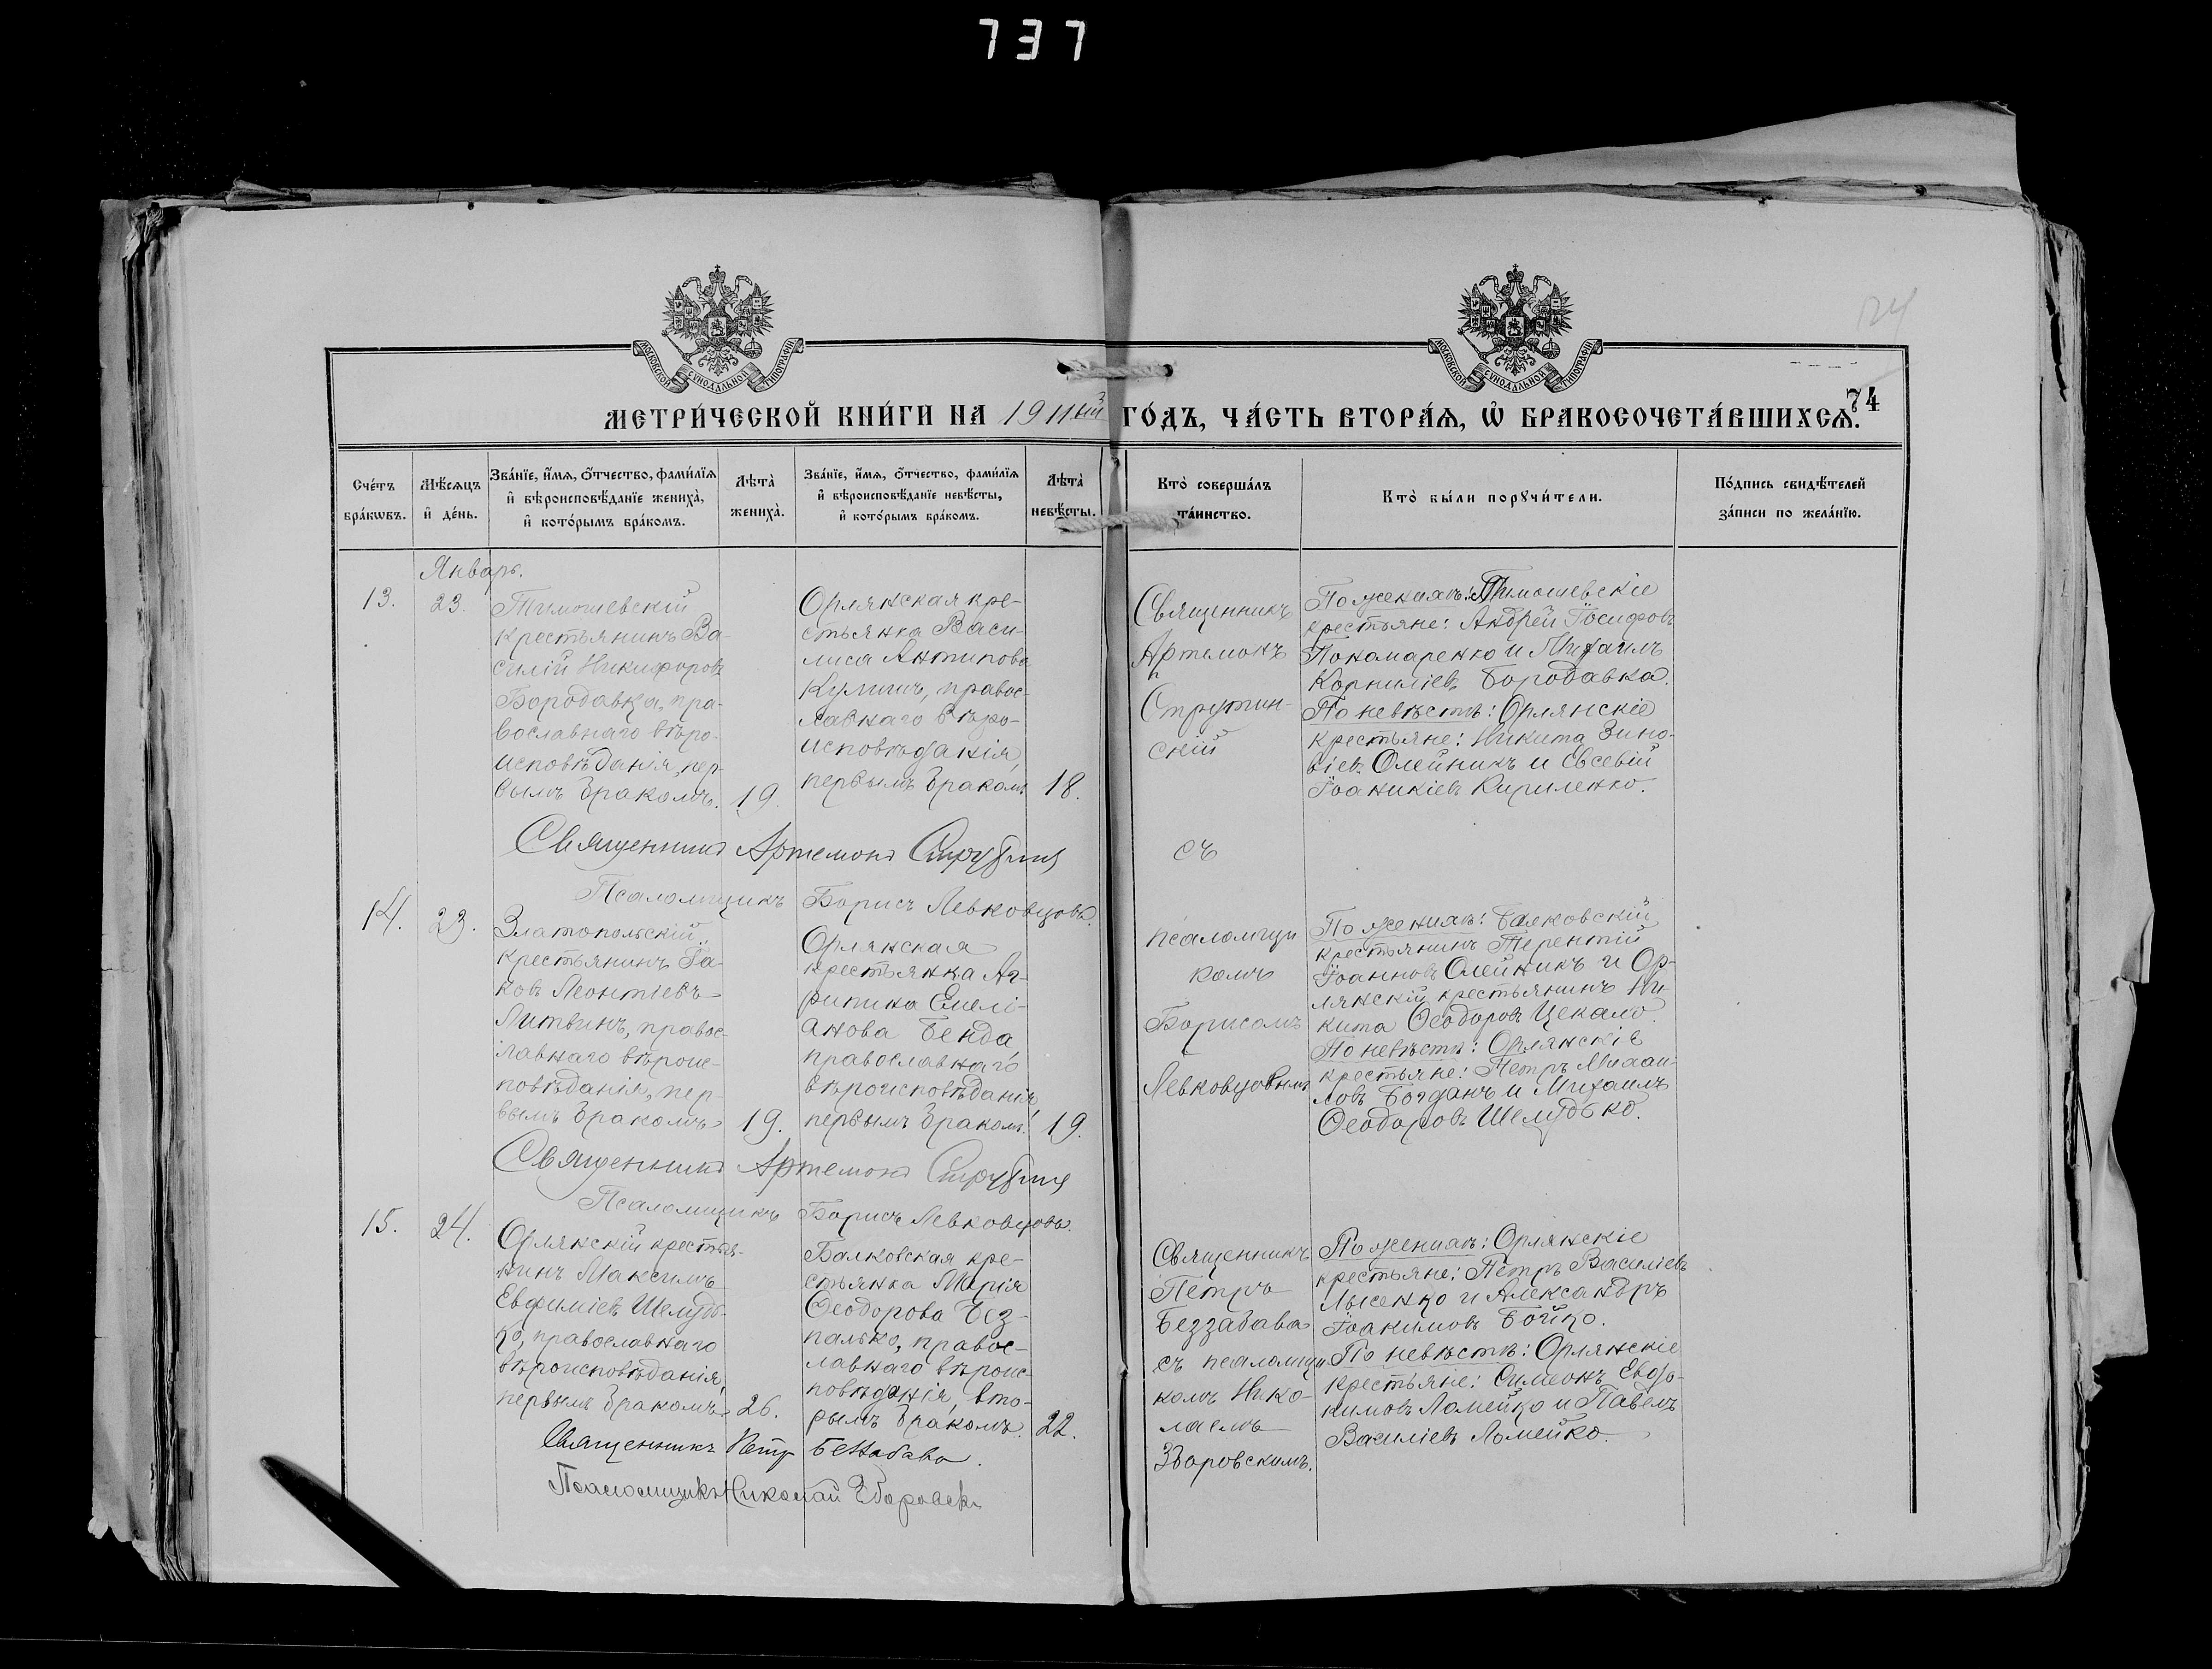 737
74
МОСКОВСКОЙ СѴНОДАЛЬНОЙ ТИПОГРАФІИ
МОСКОВСКОЙ СѴНОДАЛЬНОЙ ТИПОГРАФІИ
МЕТРИ́ЧЕСКОЙ КНИ́ГИ НА 1911ый ГО́ДЪ, ЧА́СТЬ ВТОРА́Я, Ѡ҆ БРАКОСОЧЕТА́ВШИХСЯ.
Сче́тъ
бра́кѡвъ.
Мѣ́сяцъ
и҆ де́нь.
Зва́нїе, и҆́мя, ѻ҆́тчество, фами́лїя
и҆ вѣроисповѣ́данїе жениха̀,
и҆ кото́рымъ бра́комъ.
Лѣта̀
жениха̀.
Зва́нїе, и҆́мя, ѻ҆́тчество, фами́лїя
и҆ вѣроисповѣ́данїе невѣ́сты,
и҆ кото́рымъ бра́комъ.
Лѣта̀
невѣ́сты.
Кто̀ соверша́лъ
та́инство.
Кто̀ бы́ли порꙋчи́тели.
По́дпись свидѣ́телей
за́писи по жела́нїю.
Январь.
13.
23.
Тимошевскій
крестьянинъ Ва-
силій Никифоровъ
Бородавка, пра-
вославнаго вѣро-
исповѣданія, пер-
вымъ бракомъ.
19.
Орлянская кре-
стьянка Васи-
лиса Антипова
Кулиничъ, правос-
лавнаго вѣро-
исповѣданія,
первымъ бракомъ.
18.
Священникъ
Артемонъ
Струтин-
скій
По женихѣ: Тимошевскіе
крестьяне: Андрей Іосифовъ
Пономаренко и Михаилъ
Корниліевъ Бородавка.
По невѣстѣ: Орлянскіе
крестьяне: Никита Зино-
віевъ Олейникъ и Евсевій
Іоаникіевъ Кириленко.
Священникъ Артемонъ
съ
Псаломщикъ Борисъ Левковцовъ.
14.
23.
Златопольскій
крестьянинъ Іа-
ковъ Леонтіевъ
Литвинъ, правос-
лавнаго вѣроис-
повѣданія, пер-
вымъ бракомъ
19.
Орлянская
крестьянка Аг-
рипина Емелі-
анова Бенда,
православнаго
вѣроисповѣданія,
первымъ бракомъ.
19.
псаломщи
комъ
Борисомъ
Левковцовымъ
По женихѣ: Балковскій
крестьянинъ Терентій
Іоанновъ Олейникъ и Ор-
лянскій крестьянинъ Ни-
кита Ѳеодоровъ Цекало.
По невѣстѣ: Орлянскіе
крестьяне: Петръ Михаи-
ловъ Богданъ и Михаилъ
Ѳеодоровъ Шелудько.
Священникъ Артемонъ
Псаломщикъ Борисъ Левковцовъ.
15.
24.
Орлянскій крестья-
нинъ Максимъ
Евфиміевъ Шелудь-
ко, православнаго
вѣроисповѣданія,
первымъ бракомъ
26.
Балковская кре-
стьянка Марія
Ѳеодорова Без-
палько, правос-
лавнаго вѣроис-
повѣданія, вто-
рымъ бракомъ.
22.
Священникъ
Петръ
Беззабава
съ псаломщи
комъ Нико-
лаемъ
Зборовскимъ.
По женихѣ: Орлянскіе
крестьяне: Петръ Василіевъ
Лысенко и Александръ
Іоакимовъ Бойко.
По невѣстѣ: Орлянскіе
крестьяне: Симеонъ Евдо-
кимовъ Ломейко и Павелъ
Василіевъ Ломейко.
Священникъ Петръ Беззабава.
Псаломщикъ Николай Зборовскій